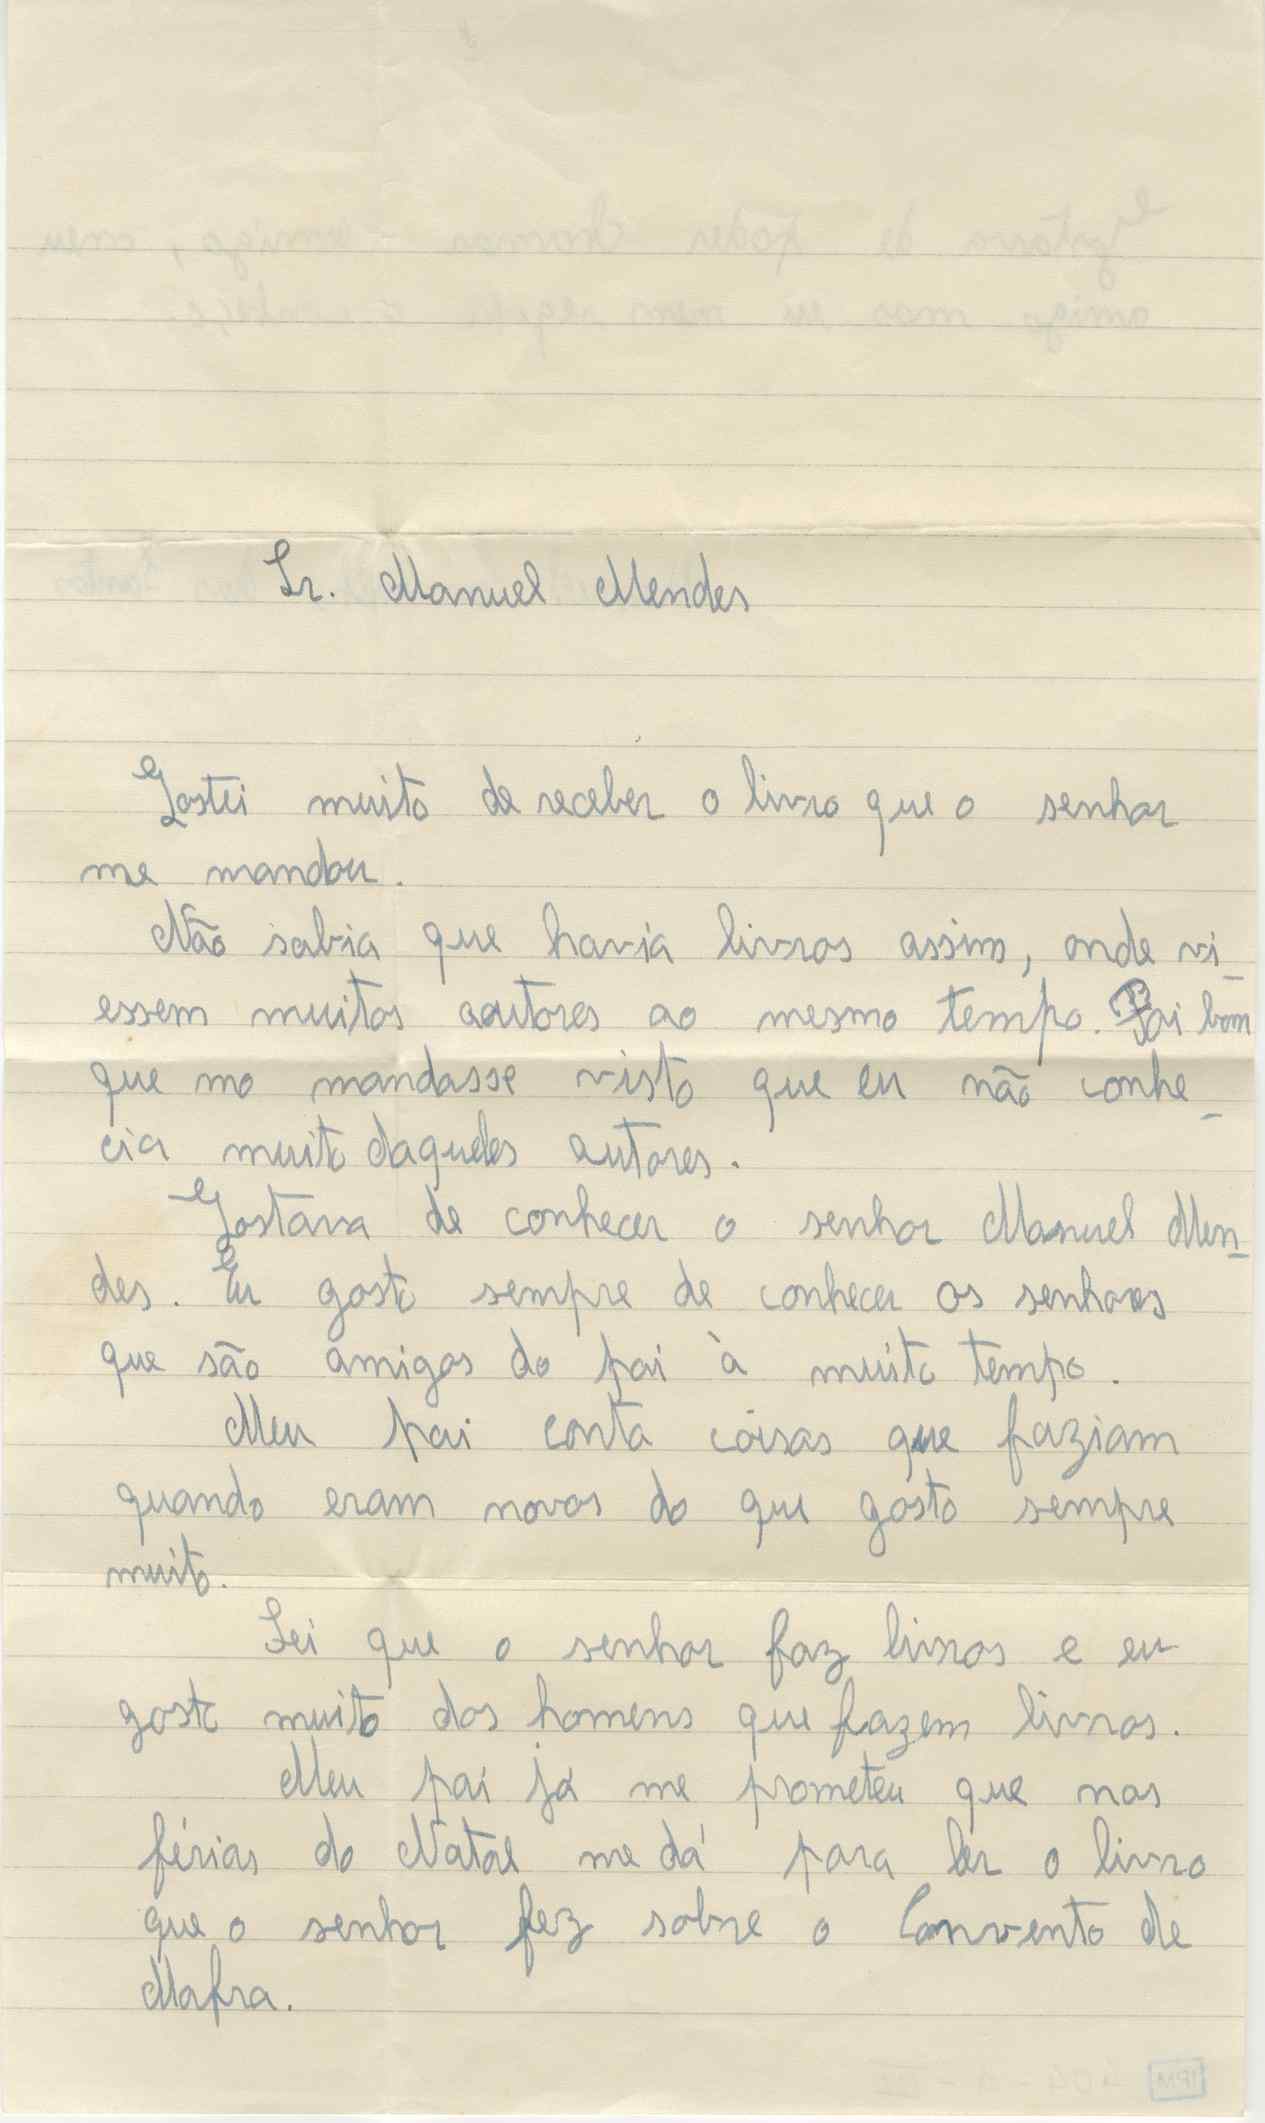 Sr. Manuel Mendes
Gostei muito de receber o livro que o senhor
me mandou.
Não sabia que havia livros assim, onde vi-
essem muitos autores ao mesmo tempo. Foi bom
que mo mandasse visto que eu não conhe-
cia muito daqueles autores.
Gostava de conhecer o senhor Manuel Men-
des. Eu gosto sempre de conhecer os senhores
que são amigos do pai à muito tempo.
Meu pai conta coisas que faziam
quando eram novos do que gosto sempre
muito.
Sei que o senhor faz livros e eu
gosto muito dos homens que fazem livros.
Meu pai já me prometeu que nas
férias do Natal me dá para ler o livro
que o senhor fez sobre o Convento de
Mafra.